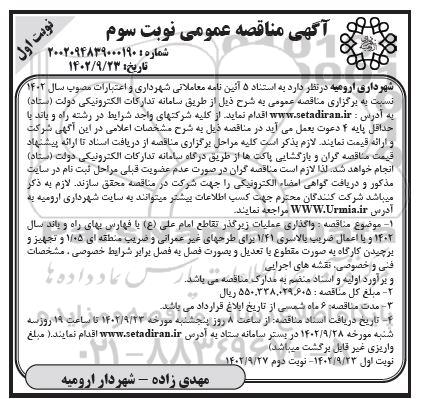 آگهی مناقصه عمومی نوبت سوم
نوبت اول
شماره: ۲۰۰۲۰۹۴۸۳۹۰۰۰۱۹۰
تاریخ: ۱۴۰۲/۹/۲۳
شهرداری ارومیه درنظر دارد به استناد ۵ آئین نامه معاملاتی شهرداری و اعتبارات مصوب سال ۱۴۰۲
نسبت به برگزاری مناقصه عمومی به شرح ذیل از طریق سامانه تدارکات الکترونیکی دولت (ستاد)
به آدرس : www.setadiran.ir اقدام نماید. از کلیه شرکتهای واجد شرایط در رشته راه و باند با
حداقل پایه ۴ دعوت بعمل می آید در مناقصه ذیل به شرح مشخصات اعلامی در این آگهی شرکت
و ارائه قیمت نمایند. لازم بذکر است کلیه مراحل برگزاری مناقصه از دریافت اسناد تا ارائه پیشنهاد
قیمت مناقصه گران و بازگشایی پاکت ها از طریق درگاه سامانه تدارکات الکترونیکی دولت (ستاد)
انجام خواهد شد. لذا لازم است مناقصه گران در صورت عدم عضویت قبلی مراحل ثبت نام در سایت
مذکور و دریافت گواهی امضاء الکترونیکی را جهت شرکت در مناقصه محقق سازند. لازم به ذکر
میباشد شرکت کنندگان محترم جهت کسب اطلاعات بیشتر میتوانند به سایت شهرداری ارومیه به
آدرس WWW.Urmia.ir مراجعه نمایند.
۱- موضوع مناقصه : واگذاری عملیات زیرگذر تقاطع امام علی (ع) با فهارس بهای راه و باند سال
۱۴۰۲ و با اعمال ضریب بالاسری ۱/۴۱ برای طرحهای غیر عمرانی و ضریب منطقه ای ۱/۰۵ و تجهیز و
برچیدن کارگاه به صورت مقطوع با تعدیل و بصورت فصل به فصل برابر شرایط خصوصی ، مشخصات
فنی و خصوصی، نقشه های اجرایی
و برآورد اولیه و اسناد منضم به مدارک مناقصه می باشد.
۲- مبلغ کل مناقصه : ۵۵۰،۳۳۸،۰۲۹،۶۰۵ ریال
۳- مدت مناقصه: ۶ ماه شمسی از تاریخ ابلاغ قرارداد می باشد.
۴- تاریخ دریافت اسناد مناقصه: از ساعت ۸ روز پنجشنبه مورخه ۱۴۰۲/۹/۲۳ تا ساعت ۱۹ روزسه
شنبه مورخه ۱۴۰۲/۹/۲۸ در بستر سامانه ستاد به آدرس www.setadiran.ir اقدام نمایند.( مبلغ
واریزی غیر قابل برگشت میباشد)
نوبت اول ۱۴۰۲/۹/۲۳- نوبت دوم ۱۴۰۲/۹/۲۷
مهدی زاده – شهردار ارومیه